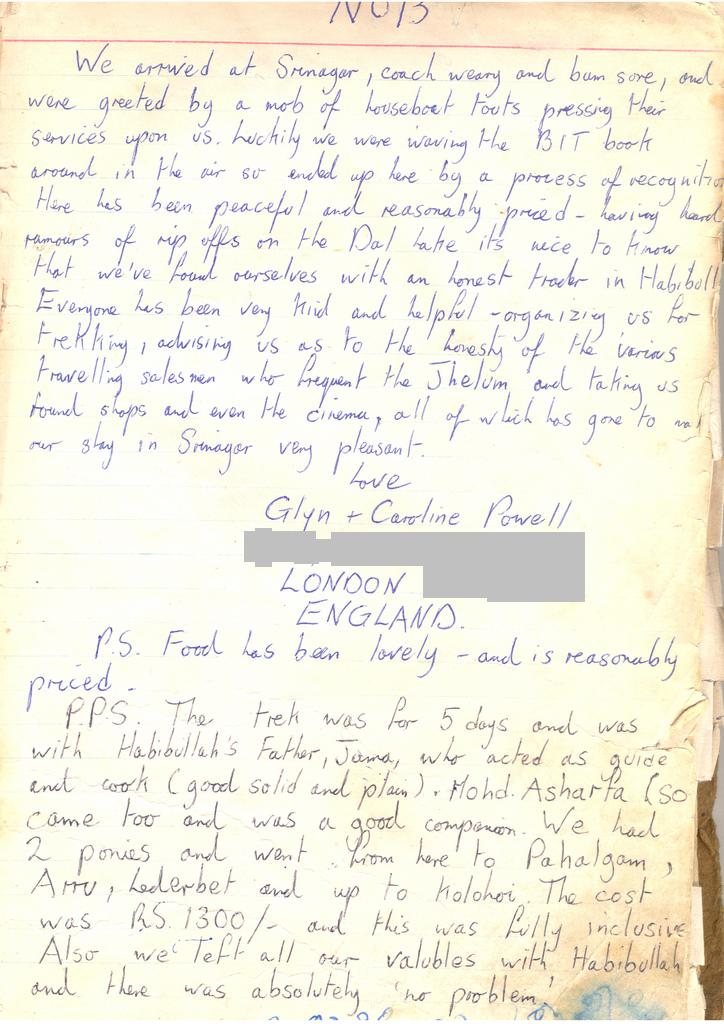 No 13
We arrived at Srinagar, coach weary and bum sore, and
were greeted by a mob of houseboat touts pressing their
services upon us. Luckily we were waving the BIT book
around in the air so ended up here by a process of recognitio
Here has been peaceful and reasonably priced - having heard
rumours of rip offs on the Dal Lake its nice to know
that we've found ourselves with an honest trader in Habibull
Everyone has been very kind and helpful - organizing us for
trekking, advising us as to the honesty of the various
travelling salesmen who frequent the Jhelum and taking us
round shops and even the cinema, all of which has gone to
our stay in Srinagar very pleasant.
Love
Glyn + Caroline Powell
LONDON
ENGLAND.
P.S. Food has been lovely - and is reasonably
priced.
P.P.S. The trek was for 5 days and was
with Habibullah's Father, Jama, who acted as guide
and cook (good solid and plain). Mohd. Asharfa (so
came too and was a good companion. We had
2 ponies and went from here to Pahalgam,
Arru, Lederbet and up to Kolohoi. The cost
was RS. 1300/- and this was fully inclusive
Also we left all our valubles with Habibullah
and there was absolutely 'no problem'